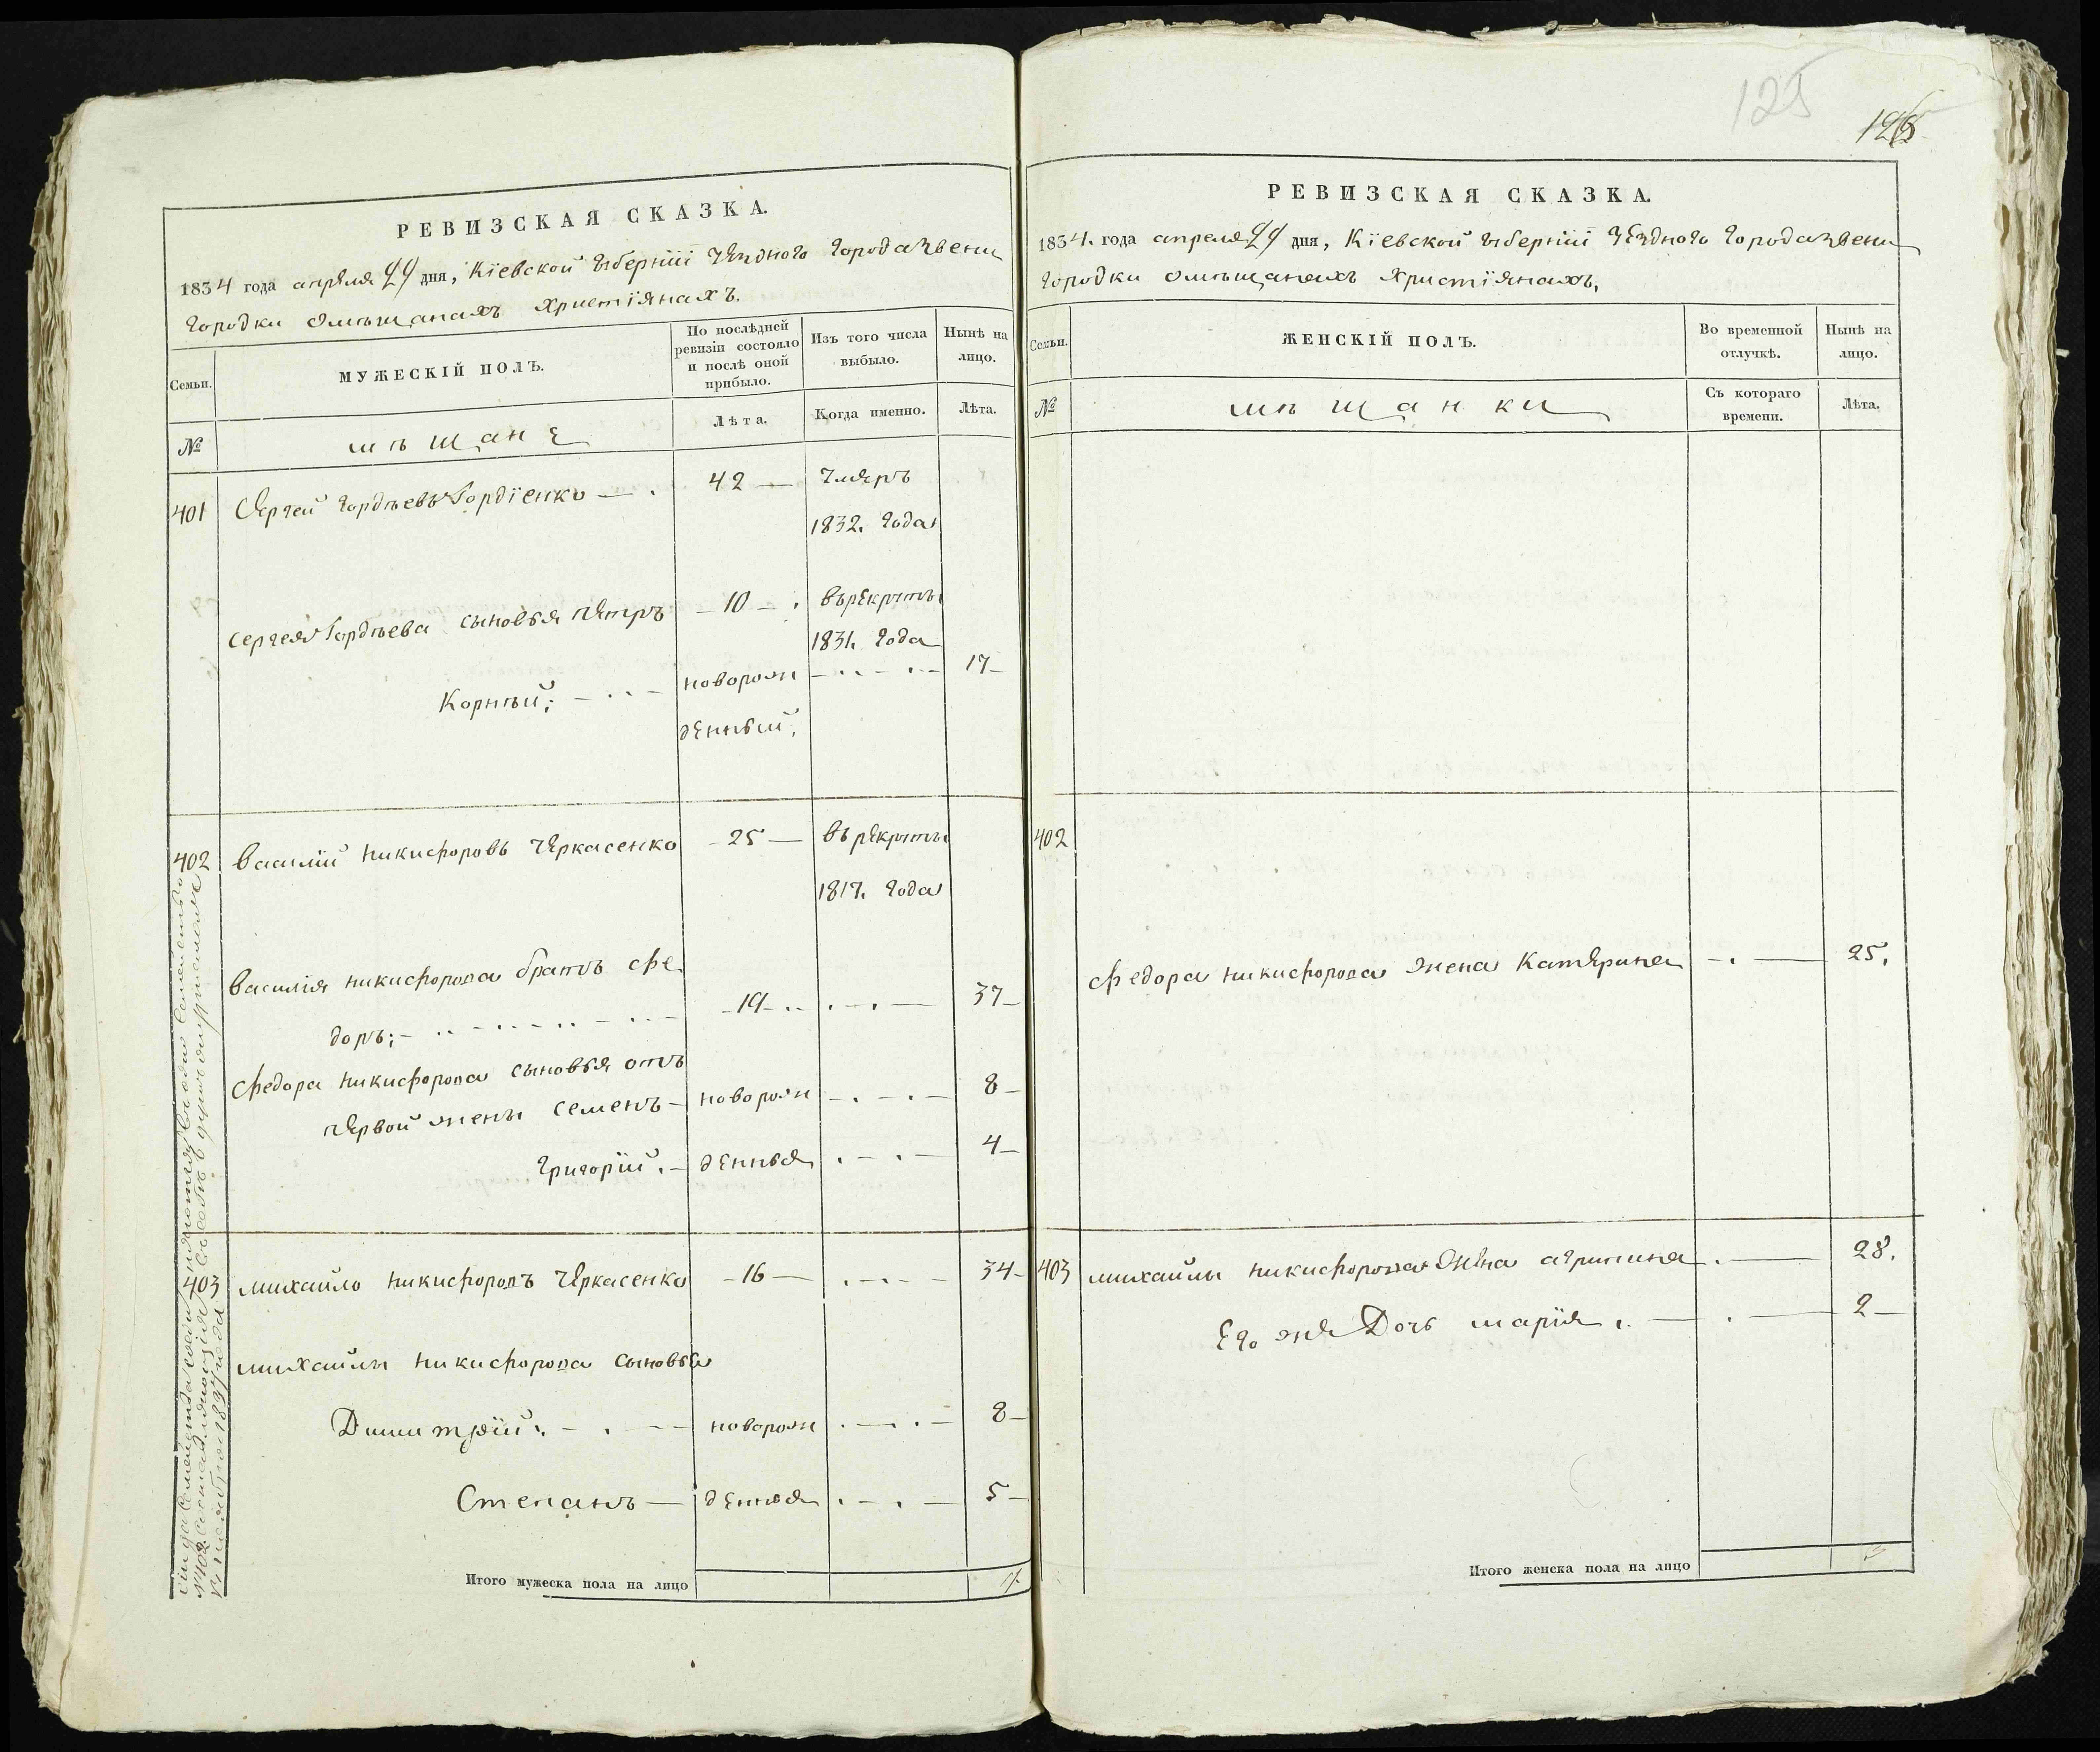 125
РЕВИЗСКАЯ СКАЗКА.
1834 года апреля 24 дня, Кіевской губерніи уезднаго города Звени
городки омѣщанахъ христіянахъ.
Семьи.
МУЖЕСКІЙ ПОЛЪ.
По послѣдней ревизіи состояло и послѣ оной прибыло.
Изъ того числа выбыло.
Нынѣ на лицо.
№
мѣщане
Лѣта.
Когда именно.
Лѣта.
401 Сергей Гордѣевъ Гордіенко — 42 — умеръ
1832. года
Сергея Гордѣева сыновья Петръ — 10 — въ рекруты
1831. года
Корнѣй; новорож 17
денный.
402 Василій Никифоровъ Черкасенко — 25 — въ рекруты
1817. года
Василія Никифорова братъ Фе
доръ; — 19 — 37
Федора Никифорова сыновья отъ
первой жены Семенъ — новорож — 8
Григорій. — денныя — 4
403 Михайло Никифоровъ Черкасенко — 16 — 34
Михайлы Никифорова сыновья
Димитрій: — новорож — 8
Степанъ — денныя — 5
Итого мужеска пола на лицо
РЕВИЗСКАЯ СКАЗКА.
1834. года апреля 24 дня, Кіевской губерніи уезднаго города Звени
городки омѣщанахъ христіянахъ.
Семьи.
ЖЕНСКІЙ ПОЛЪ.
Во временной отлучкѣ.
Нынѣ на лицо.
№
мѣщанки
Съ котораго времени.
Лѣта.
402
Федора Никифорова жена Катерина — 25.
403 Михайлы Никифорова жена Агрипина — 28.
Его же Дочь Марія. — 2
Итого женска пола на лицо 3